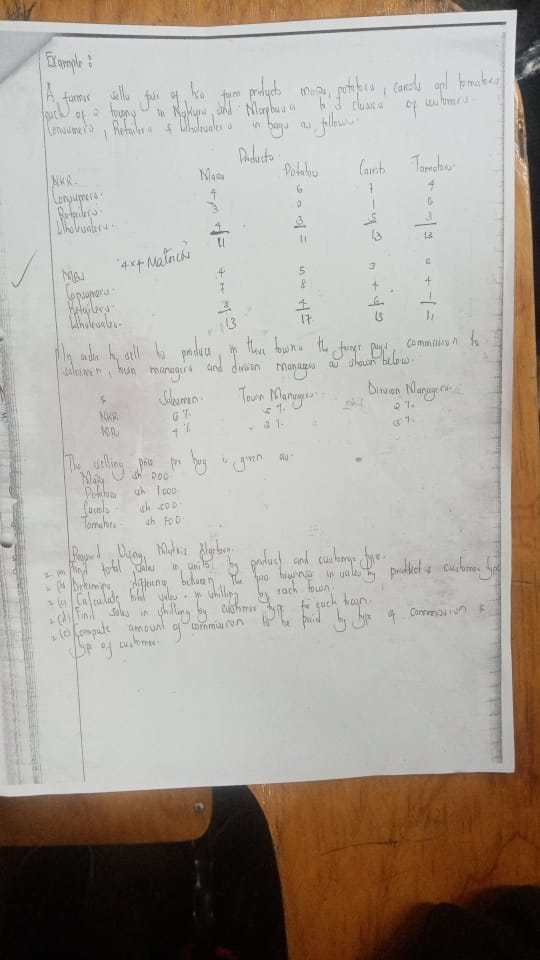 Example:
A farmer sells four of his farm products maize, potatoes, carrots and tomatoes
each of 2 towns in Nakuru and Mombasa to 3 classes of customers.
Consumers, Retailers & Wholesalers in bags as follows.
Products
NKR. Maize Potatoes Carrots Tomatoes.
Consumers. 4 6 7 4
Retailers. 3 2 1 6
Wholesalers. 4 3 5 3
11 11 13 13
4x4 Matrices
MBS 4 5 3 6
Consumers 7 8 4 4
Retailers 2 4 6 1
Wholesalers. 13 17 13 11
In order to sell his produce in these towns the farmer pays commission to
salesmen, town managers and division managers as shown below.
Salesmen. Town Managers. Division Managers.
NKR 6% 5% 2%
MB 4% 3% 3%
The selling price per bag is given as.
Maize sh 200.
Potatoes sh 1000.
Carrots sh 500.
Tomatoes. sh 700.
Required Using Matrix Algebra.
(a) Find total sales in units by product and customer type.
(b) Determine difference between the two towns in sales by product & customer type
(c) Calculate total sales in shilling by each town.
(d) Find sales in shilling by customer type for each town.
(e) Compute amount of commission to be paid by type of commission &
type of customer.